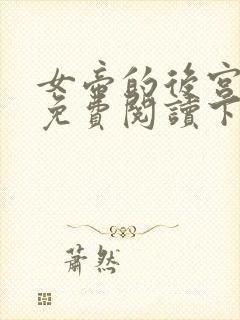 女帝的後宮
免費閱讀下
蕭然